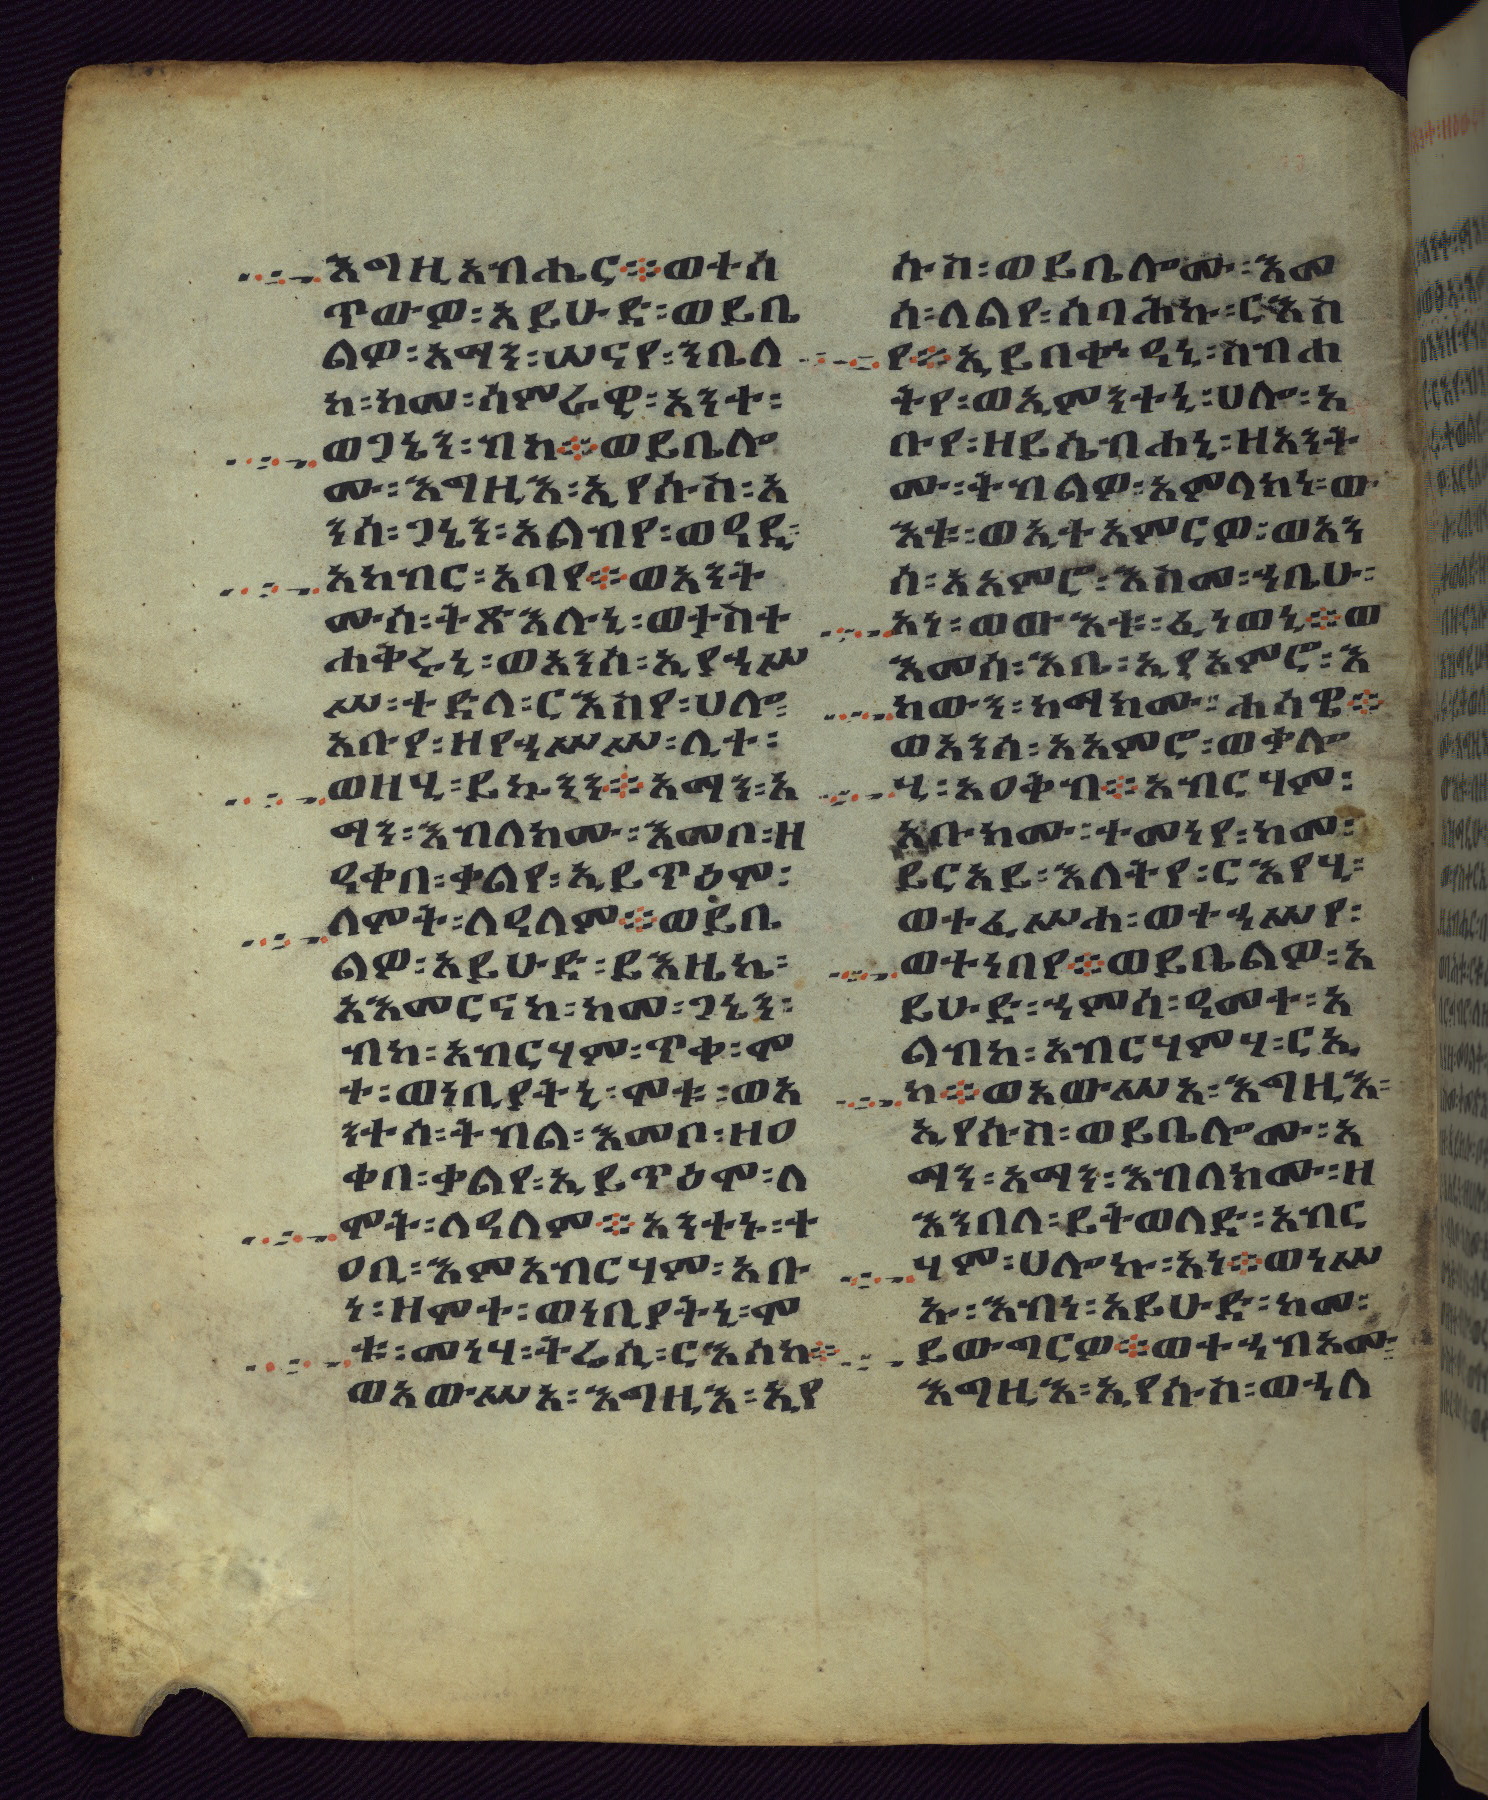 እግዚአብሔር፨ወተሰ
ጥውዎ፡አይሁድ፡ወይቤ
ልዎ፡አማን፡ሠናየ፡ንቤለ
ከ፡ከመ፡ሳምራዊ፡አንተ፡
ወጋኔን፡ብከ፨ወይቤሎ
ሙ፡እግዚእ፡ኢየሱስ፡አ
ንሰ፡ጋኔን፡አልብየ፡ወዳዲ፡
አከብር፡አባየ፨ወአንት
ሙሰ፡ትጽእሉኒ፡ወተስተ
ሐቅሩኒ፡ወአንሰ፡ኢያኀሥ
ሥ፡ተድላ፡ርእስየ፡ሀሎ፡
አቡየ፡ዘየኀሥሥ፡ሊተ፡
ወዘሂ፡ይኴንን፨አማን፡አ
ማን፡እብለከሙ፡እመቦ፡ዘ
ዓቀበ፡ቃልየ፡ኢይጥዕም፡
ለሞት፡ለዓለም፨ወይቤ
ልዎ፡አይሁድ፡ይእዜኬ፡
አእመርናከ፡ከመ፡ጋኔን፡
ብከ፡አብርሃም፡ጥቀ፡ሞ
ተ፡ወነቢያትኒ፡ሞቱ፡ወአ
ንተሰ፡ትብል፡እመቦ፡ዘዐ
ቀበ፡ቃልየ፡ኢይጥዕሞ፡ለ
ሞት፡ለዓለም፨አንተኑ፡ተ
ዐቢ፡እምአብርሃም፡አቡ
ነ፡ዘሞተ፡ወነቢያትኒ፡ሞ
ቱ፡መነሃ፡ትሬሲ፡ርእሰከ፨
ወአውሥአ፡እግዚእ፡ኢየ
ሱስ፡ወይቤሎሙ፡እመ
ሰ፡ለልየ፡ሰባሕኩ፡ርእስ
የ፨ኢይበቍዓኒ፡ስብሐ
ትየ፡ወኢምንትኒ፡ሀሎ፡አ
ቡየ፡ዘይሴብሐኒ፡ዘአንት
ሙ፡ትብልዎ፡አምላክነ፡ው
እቱ፡ወኢተአምርዎ፡ወአን
ሰ፡አአምሮ፡እስመ፡ኀቤሁ፡
አነ፡ወውእቱ፡ፈነወኒ፨ወ
እመሰ፡እቤ፡ኢያአምሮ፡እ
ከውን፡ከማክሙ፡ሐሳዌ፨
ወአንሰ፡አአምሮ፡ወቃሎ
ሂ፡አዐቅብ፨አብርሃም፡
አቡክሙ፡ተመነየ፡ከመ፡
ይርአይ፡እለትየ፡ርእየሂ፡
ወተፈሥሐ፡ወተኀሥየ፡
ወተነበየ፨ወይቤልዎ፡አ
ይሁድ፡ኀምሳ፡ዓመተ፡አ
ልብከ፡አብርሃምሃ፡ርኢ
ከ፨ወአውሥአ፡እግዚእ፡
ኢየሱስ፡ወይቤሎሙ፡አ
ማን፡አማን፡እብለክሙ፡ዘ
እንበለ፡ይትወለድ፡አብር
ሃም፡ሀሎኩ፡አነ፨ወነሥ
ኡ፡እብነ፡አይሁድ፡ከመ፡
ይውግርዎ፨ወተኀብአሙ፡
እግዚእ፡ኢየሱስ፡ወኀለ